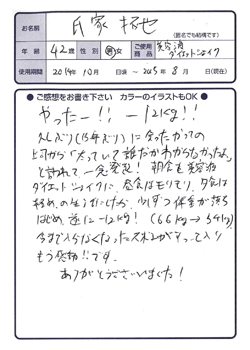 お名前 氏家 拓也
(匿名でも結構です)
年齢 42歳 性別 男・女 ご使用商品 美容液 ダイエットシェイク
使用期間 2014年10月 日頃 ～ 2015年8月 日(現在)
●ご感想をお書き下さい カラーのイラストもOK●
やったー!! -12kg!!
久しぶり(15年ぶり)に会ったかつての
上司から「太っていて誰だかわからなかったよ」
と言われて一念発起! 朝食を美容液
ダイエットシェイクに、昼食はモリモリ、夕食は
軽め、の生活にしたら、少しずつ体重が落ち
はじめ、遂に-12kg! (66kg→54kg)
今まで入らなくなったズボンがすっと入り
もう感動!!です。
ありがとうございました!